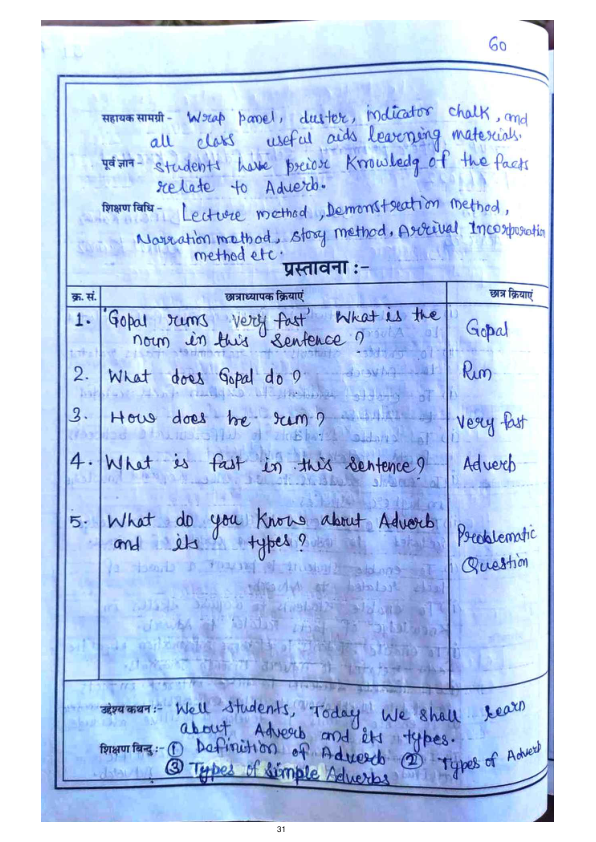 60
सहायक सामग्री - Wrap panel, duster, indicator chalk, and
all class useful aids learning materials.
पूर्व ज्ञान - students have prior Knowledg of the facts
relate to Adverb.
शिक्षण विधि - Lecture method, Demonstreation method,
Narration method, story method, Arrival Incorporation
method etc.
प्रस्तावना :-
क्र. सं. छात्राध्यापक क्रियाएं छात्र क्रियाएं
1. 'Gopal runs very fast' What is the
noun in this sentence ? Gopal
2. What does Gopal do ? Run
3. How does he run ? Very fast
4. What is fast in this sentence ? Adverb
5. What do you Know about Adverb
and its types ? Problematic
Question
उद्देश्य कथन :- Well students, Today We shall learn
about Adverb and its types.
शिक्षण बिन्दु :- ① Definition of Adverb ② Types of Adverb
③ Types of simple Adverbs
31